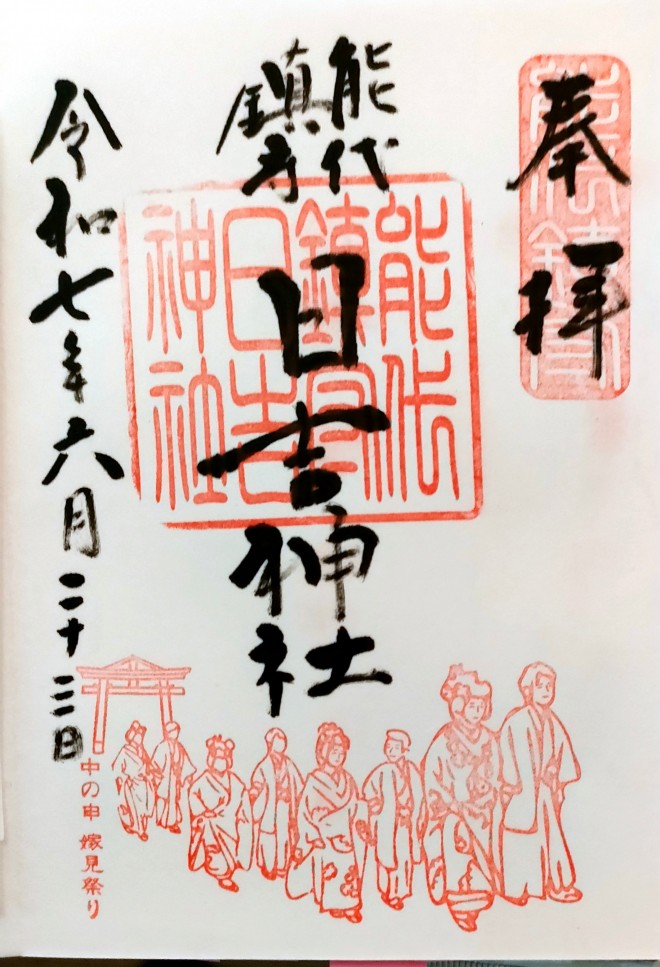 奉拝
能代鎮守
能代鎮守
能代
鎮守
日吉神社
能代
鎮守
日吉
神社
令和七年六月二十三日
中の申 嫁見祭り